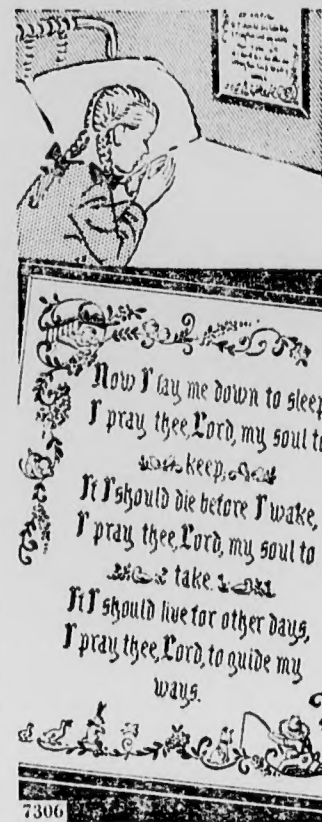 Now I lay me down to sleep
I pray thee, Lord, my soul to
keep,
If I should die before I wake,
I pray thee, Lord, my soul to
take.
If I should live for other days,
I pray thee, Lord, to guide my
ways.
7306